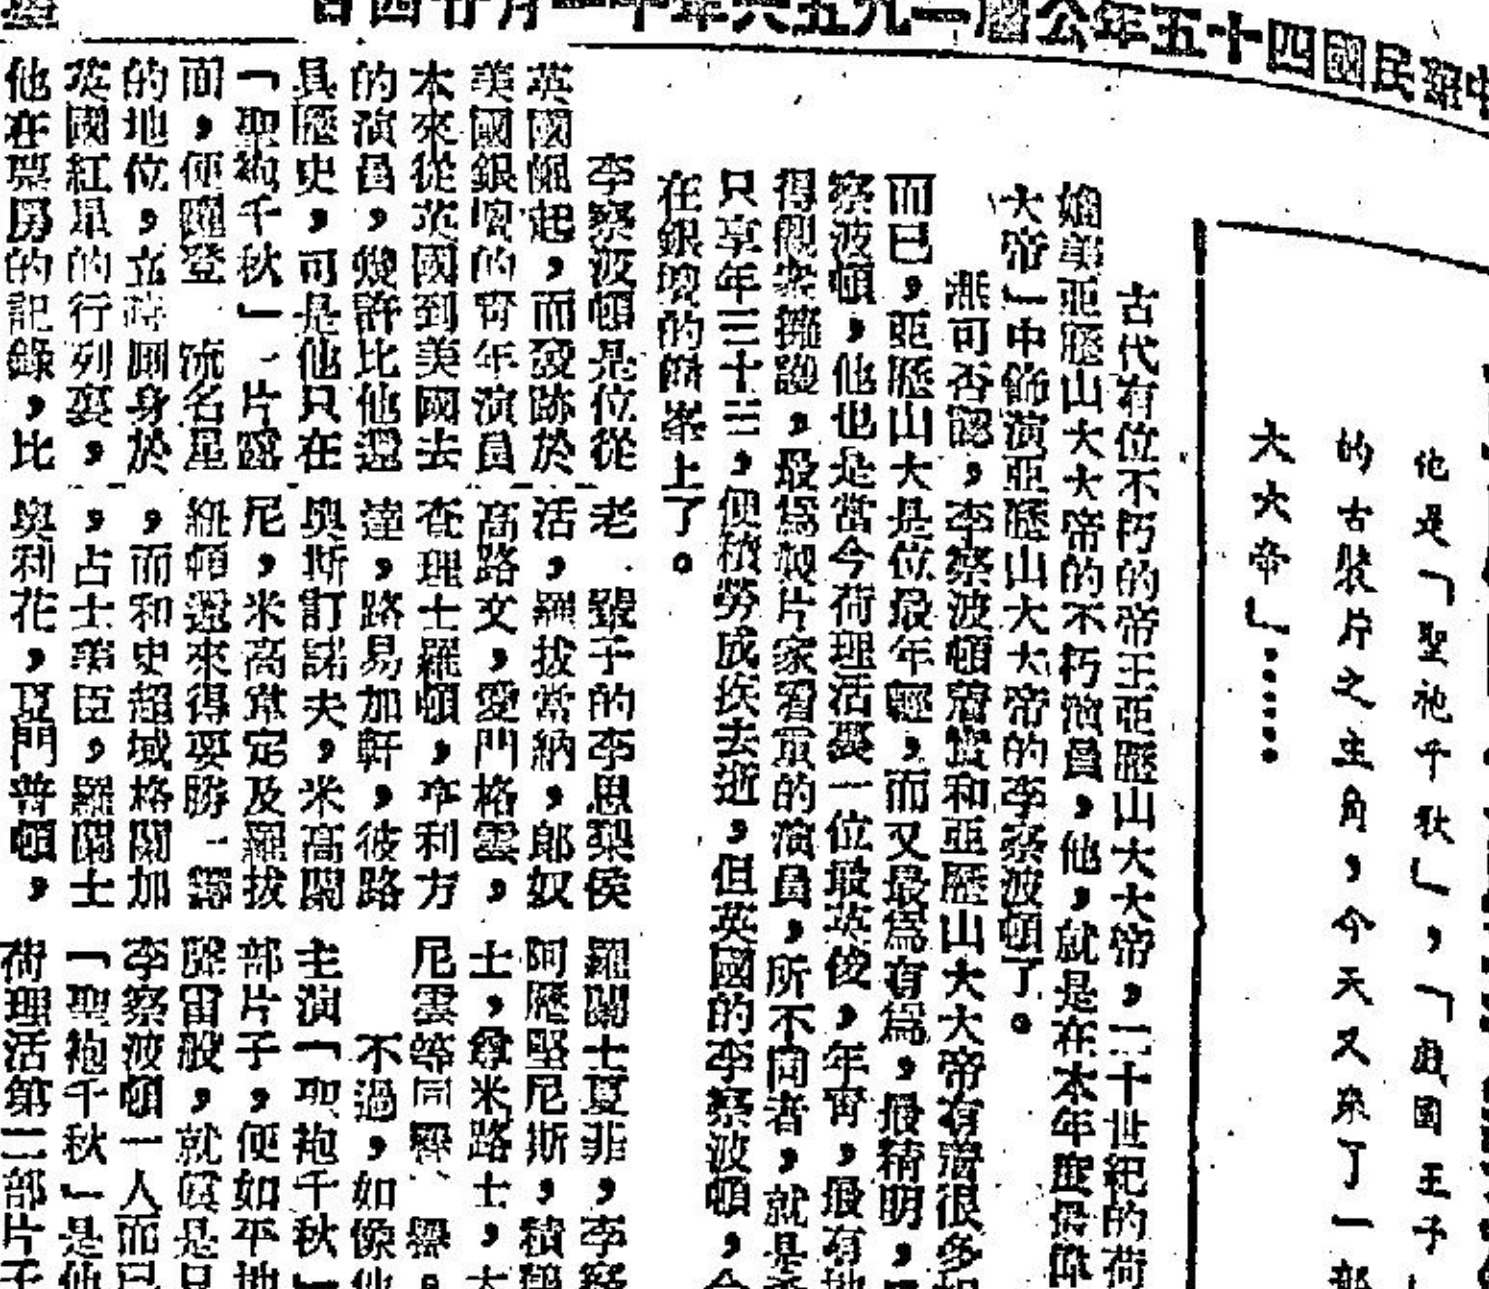 中華民國四十五年公曆一九五六年十一月廿四日
他是「聖袍千秋」，「戲國王子」
的古裝片之主角，今天又來了一部
大大帝」……
古代有位不朽的帝王亞歷山大大帝，二十世紀的荷
嬌美亞歷山大大帝的不朽演員，他，就是在本年度最偉
大帝」中飾演亞歷山大大帝的李察波頓了。
無可否認，李察波頓確實和亞歷山大大帝有着很多
而已，亞歷山大是位最年輕，而又最爲有爲，最精明，
察波頓，他也是當今荷理活裏一位最英俊，年靑，最有地
得觀衆擁護，最爲製片家看重的演員，所不同者，就是
只享年三十三，便積勞成疾去逝，但英國的李察波頓，今
在銀壇的巔峯上了。
李察波頓是位從
英國崛起，而發跡於
美國銀壇的靑年演員
本來從英國到美國去
的演員，幾許比他還
具歷史，可是他只在
「聖袍千秋」一片露
面，便躍登一流名星
的地位，立時廁身於
英國紅星的行列裏，
他在票房的記錄，比
老一輩子的李思梨侯
活，羅拔當納，郎奴
高路文，愛門格雲，
査理士羅頓，亨利方
達，路易加軒，彼路
奥斯訂諾夫，米高關
尼，米高韋定及羅拔
紐頓還來得要勝一籌
，而和史超域格蘭加
，占士美臣，羅蘭士
奥利花，夏門普頓，
羅蘭士夏菲，李察
阿歷堅尼斯，積鶴
士，米路士，大
尼雲等同
不過，如像他
主演「聖袍千秋」
部片子，便如平地
聲雷般，就眞是只
李察波頓一人而已
「聖袍千秋」是他
荷理活第二部片子